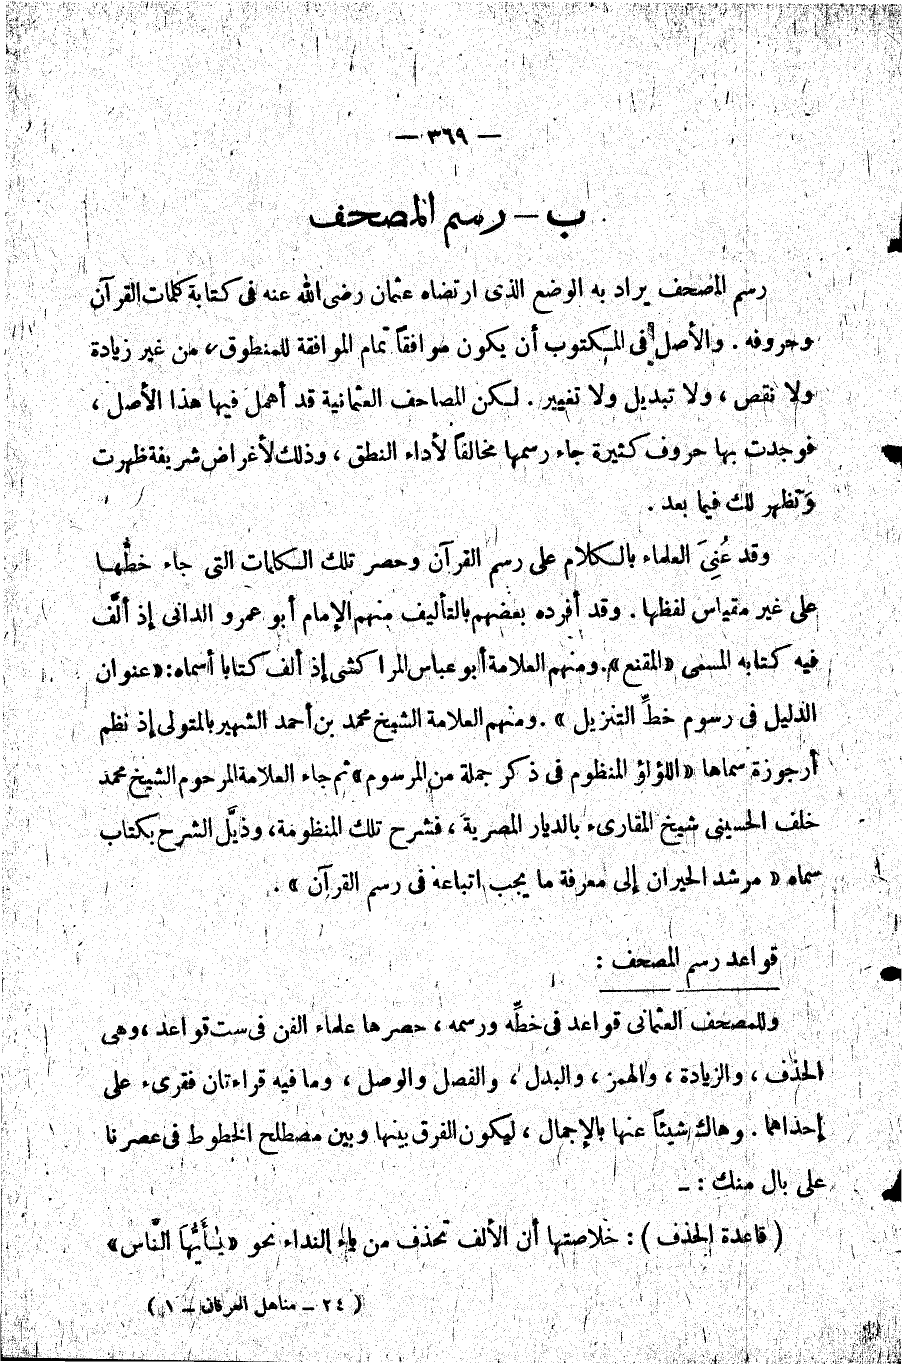 — ٣٦٩ —
ب – رسم المصحف
رسم المصحف يراد به الوضع الذى ارتضاه عثمان رضى الله عنه فى كتابة كلمات القرآن
وحروفه . والأصل فى المكتوب أن يكون موافقاً تمام الموافقة للمنطوق، من غير زيادة
ولا نقص ، ولا تبديل ولا تغيير . لكن المصاحف العثمانية قد أهمل فيها هذا الأصل ،
فوجدت بها حروف كثيرة جاء رسمها مخالفاً لأداء النطق ، وذلك لأغراض شريفة ظهرت
وتظهر لك فيما بعد .
وقد عُنِىَ العلماء بالكلام على رسم القرآن وحصر تلك الكلمات التى جاء خطُّها
على غير مقياس لفظها . وقد أفرده بعضهم بالتأليف منهم الإمام أبو عمرو الدانى إذ ألَّف
فيه كتابه المسمى «المقنع». ومنهم العلامة أبو عباس المراكشى إذ ألف كتابا أسماه: «عنوان
الدليل فى رسوم خطِّ التنزيل » . ومنهم العلامة الشيخ محمد بن أحمد الشهير بالمتولى إذ نظم
أرجوزة سماها «اللؤلؤ المنظوم فى ذكر جملة من المرسوم» ثم جاء العلامة المرحوم الشيخ محمد
خلف الحسينى شيخ المقارىء بالديار المصرية ، فشرح تلك المنظومة، وذيَّل الشرح بكتاب
سماه « مرشد الحيران إلى معرفة ما يجب اتباعه فى رسم القرآن » .
قواعد رسم المصحف :
وللمصحف العثمانى قواعد فى خطِّه ورسمه ، حصرها علماء الفن فى ست قواعد ، وهى
الحذف ، والزيادة ، والهمز ، والبدل ، والفصل والوصل ، وما فيه قراءتان فقرىء على
إحداهما . وهاك شيئاً عنها بالإجمال ، ليكون الفرق بينها وبين مصطلح الخطوط فى عصرنا
على بال منك : –
( قاعدة الحذف ) : خلاصتها أن الألف تحذف من ياء النداء نحو «يَٰٓأَيُّهَا النَّاس»
( ٢٤ – مناهل العرفان – ١ )